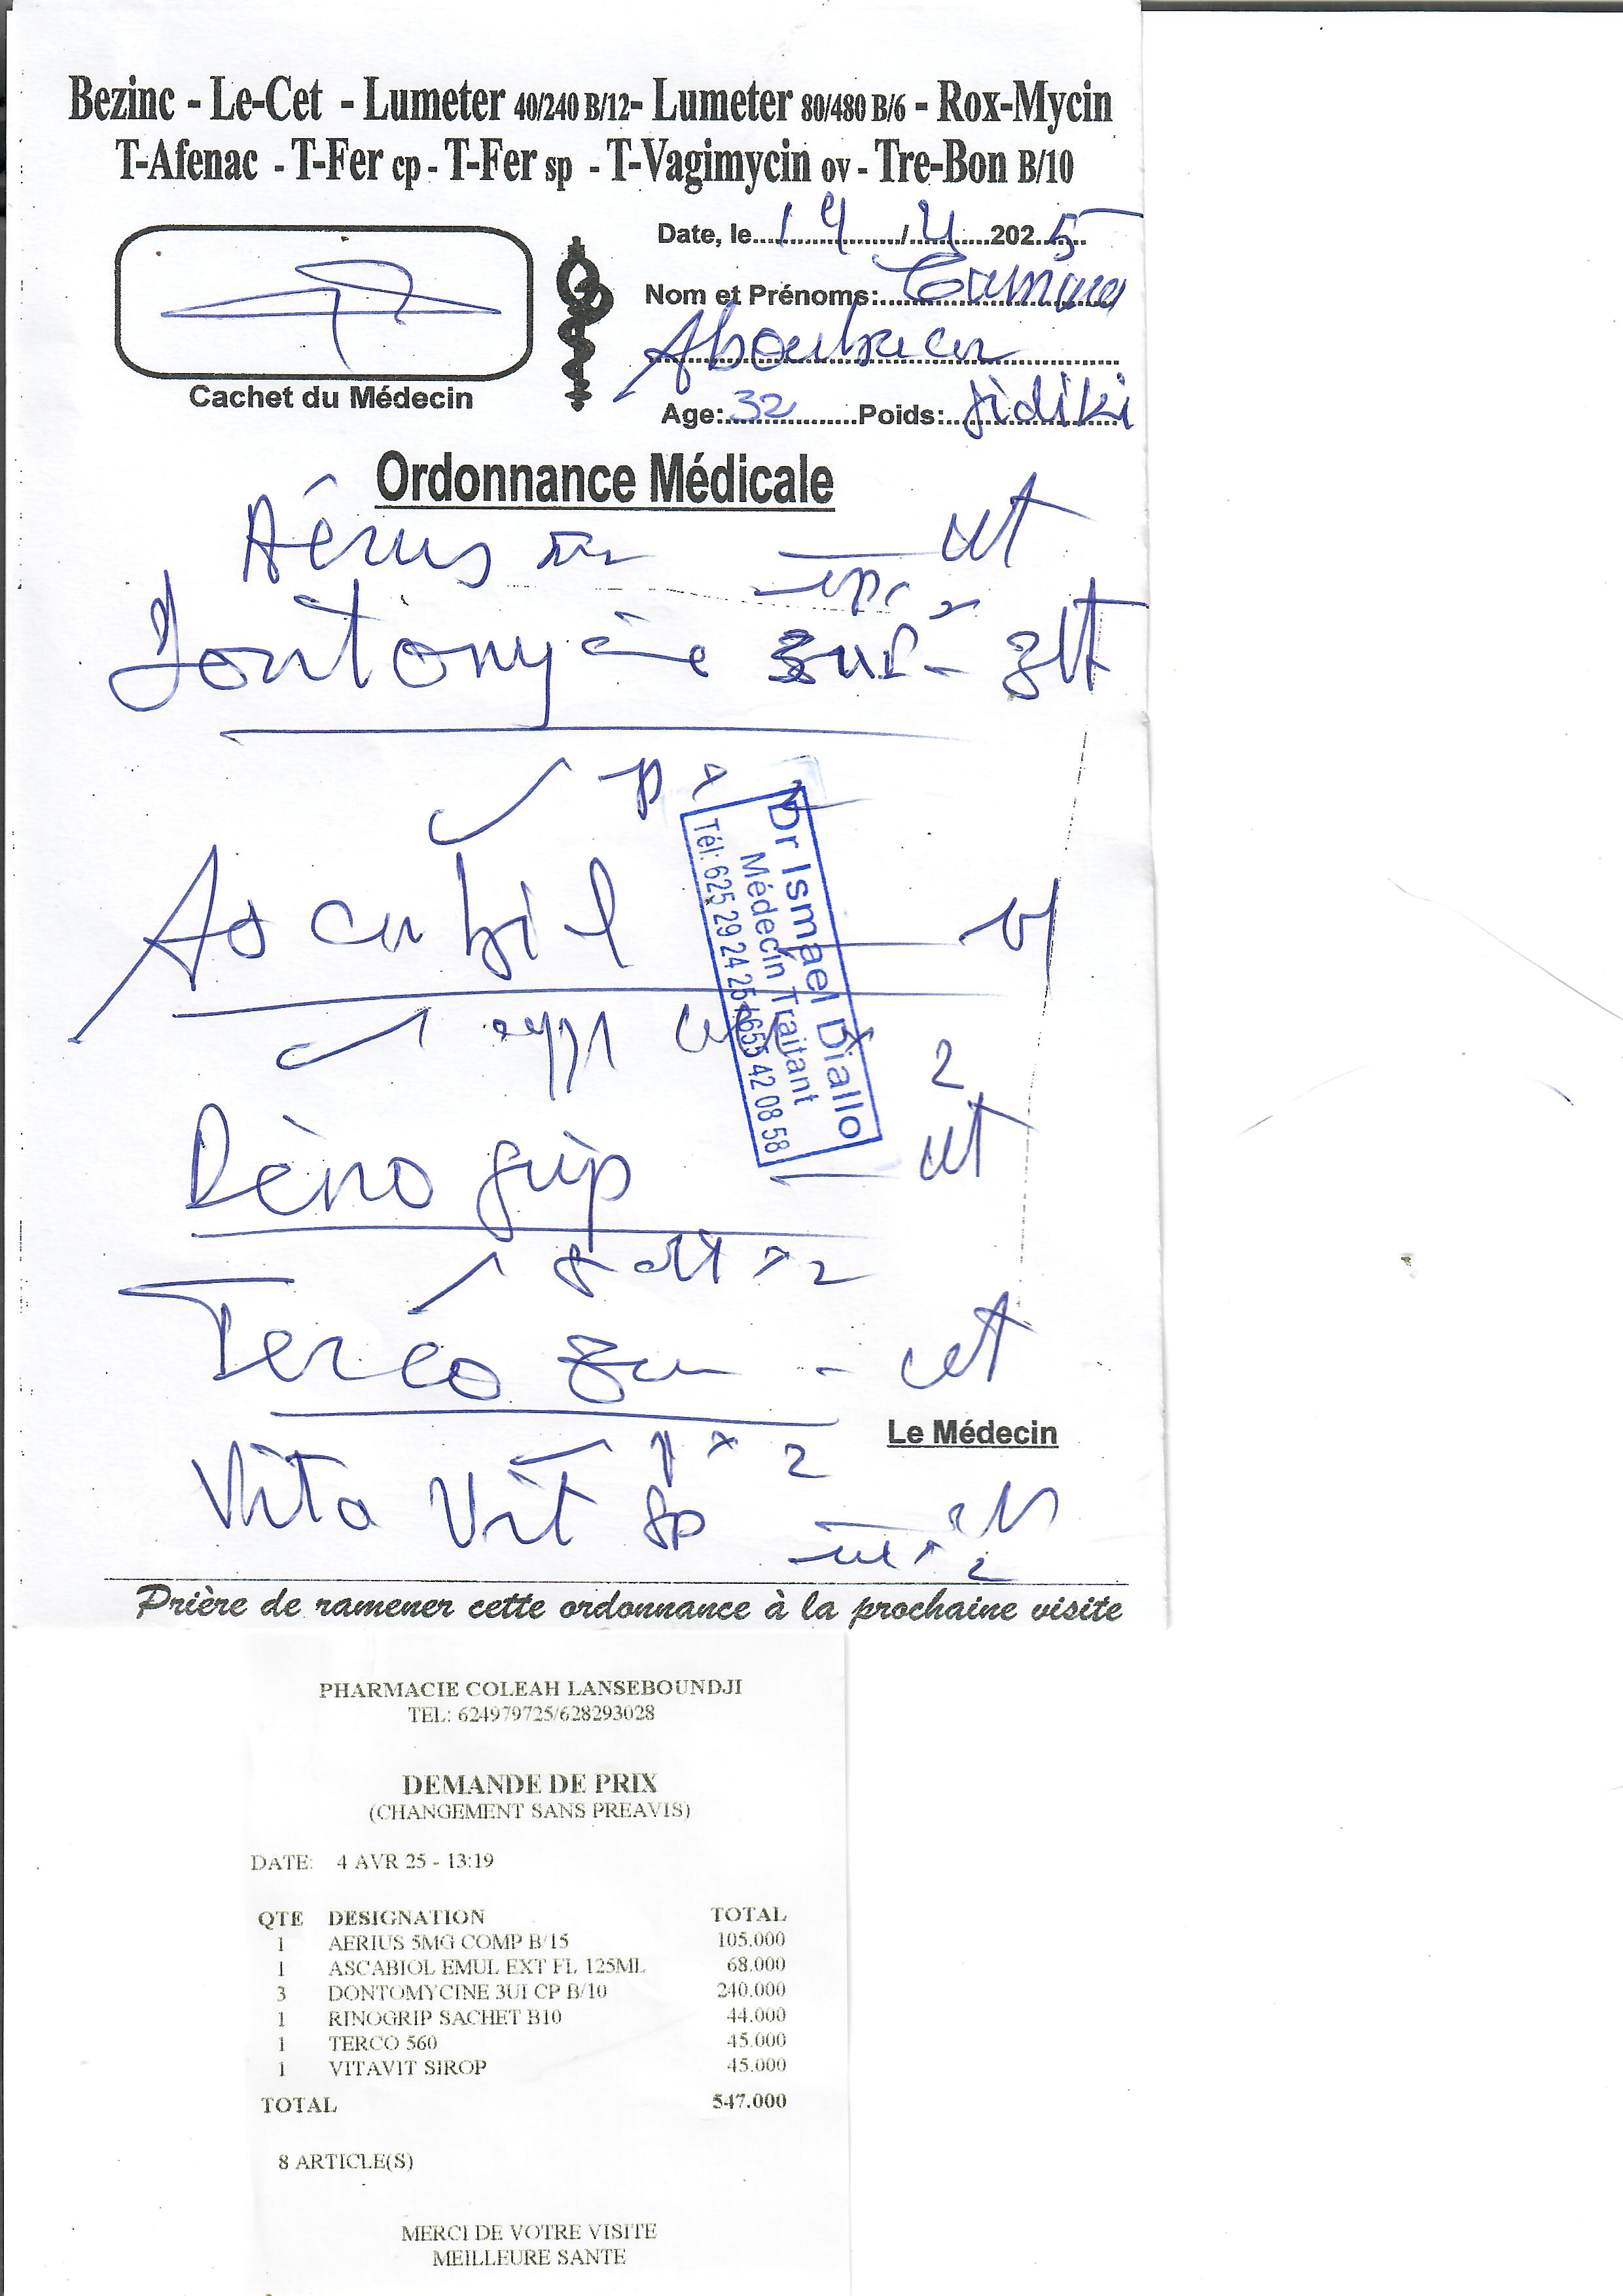 Bezinc - Le-Cet - Lumeter 40/240 B/12- Lumeter 80/480 B/6 - Rox-Mycin
T-Afenac - T-Fer cp - T-Fer sp - T-Vagimycin ov - Tre-Bon B/10
Date, le 14 / 4 2025
Nom et Prénoms: Camara
Aboubacar
Cachet du Médecin
Age: 32 Poids: Sidiki
Ordonnance Médicale
Aérius
Dontomycine 3 3
p x
Dr Ismael Diallo
Médecin Traitant
Tél: 625 29 24 25 / 655 42 08 58
Ascabiol
2
Rinogrip
x 2
Terco
1 x 2
Le Médecin
Vita Vit sp
x 2
Prière de ramener cette ordonnance à la prochaine visite
PHARMACIE COLEAH LANSEBOUNDJI
TEL: 624979725/628293028
DEMANDE DE PRIX
(CHANGEMENT SANS PREAVIS)
DATE: 4 AVR 25 - 13:19
QTE DESIGNATION TOTAL
1 AERIUS 5MG COMP B/15 105.000
1 ASCABIOL EMUL EXT FL 125ML 68.000
3 DONTOMYCINE 3UI CP B/10 240.000
1 RINOGRIP SACHET B10 44.000
1 TERCO 560 45.000
1 VITAVIT SIROP 45.000
TOTAL 547.000
8 ARTICLE(S)
MERCI DE VOTRE VISITE
MEILLEURE SANTE